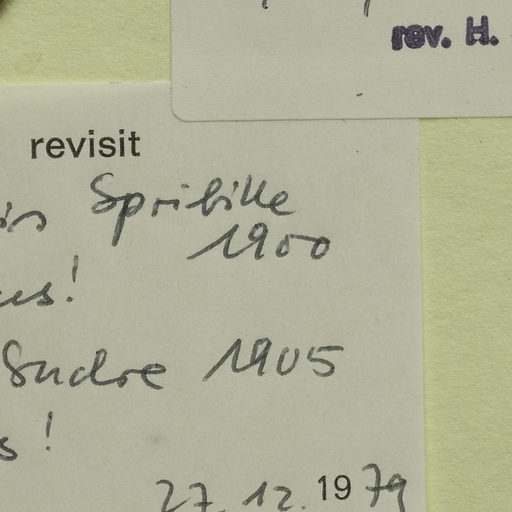 rev. H.
revisit
Spribille
1900
!
Sudre 1905
s!
27. 12. 1979